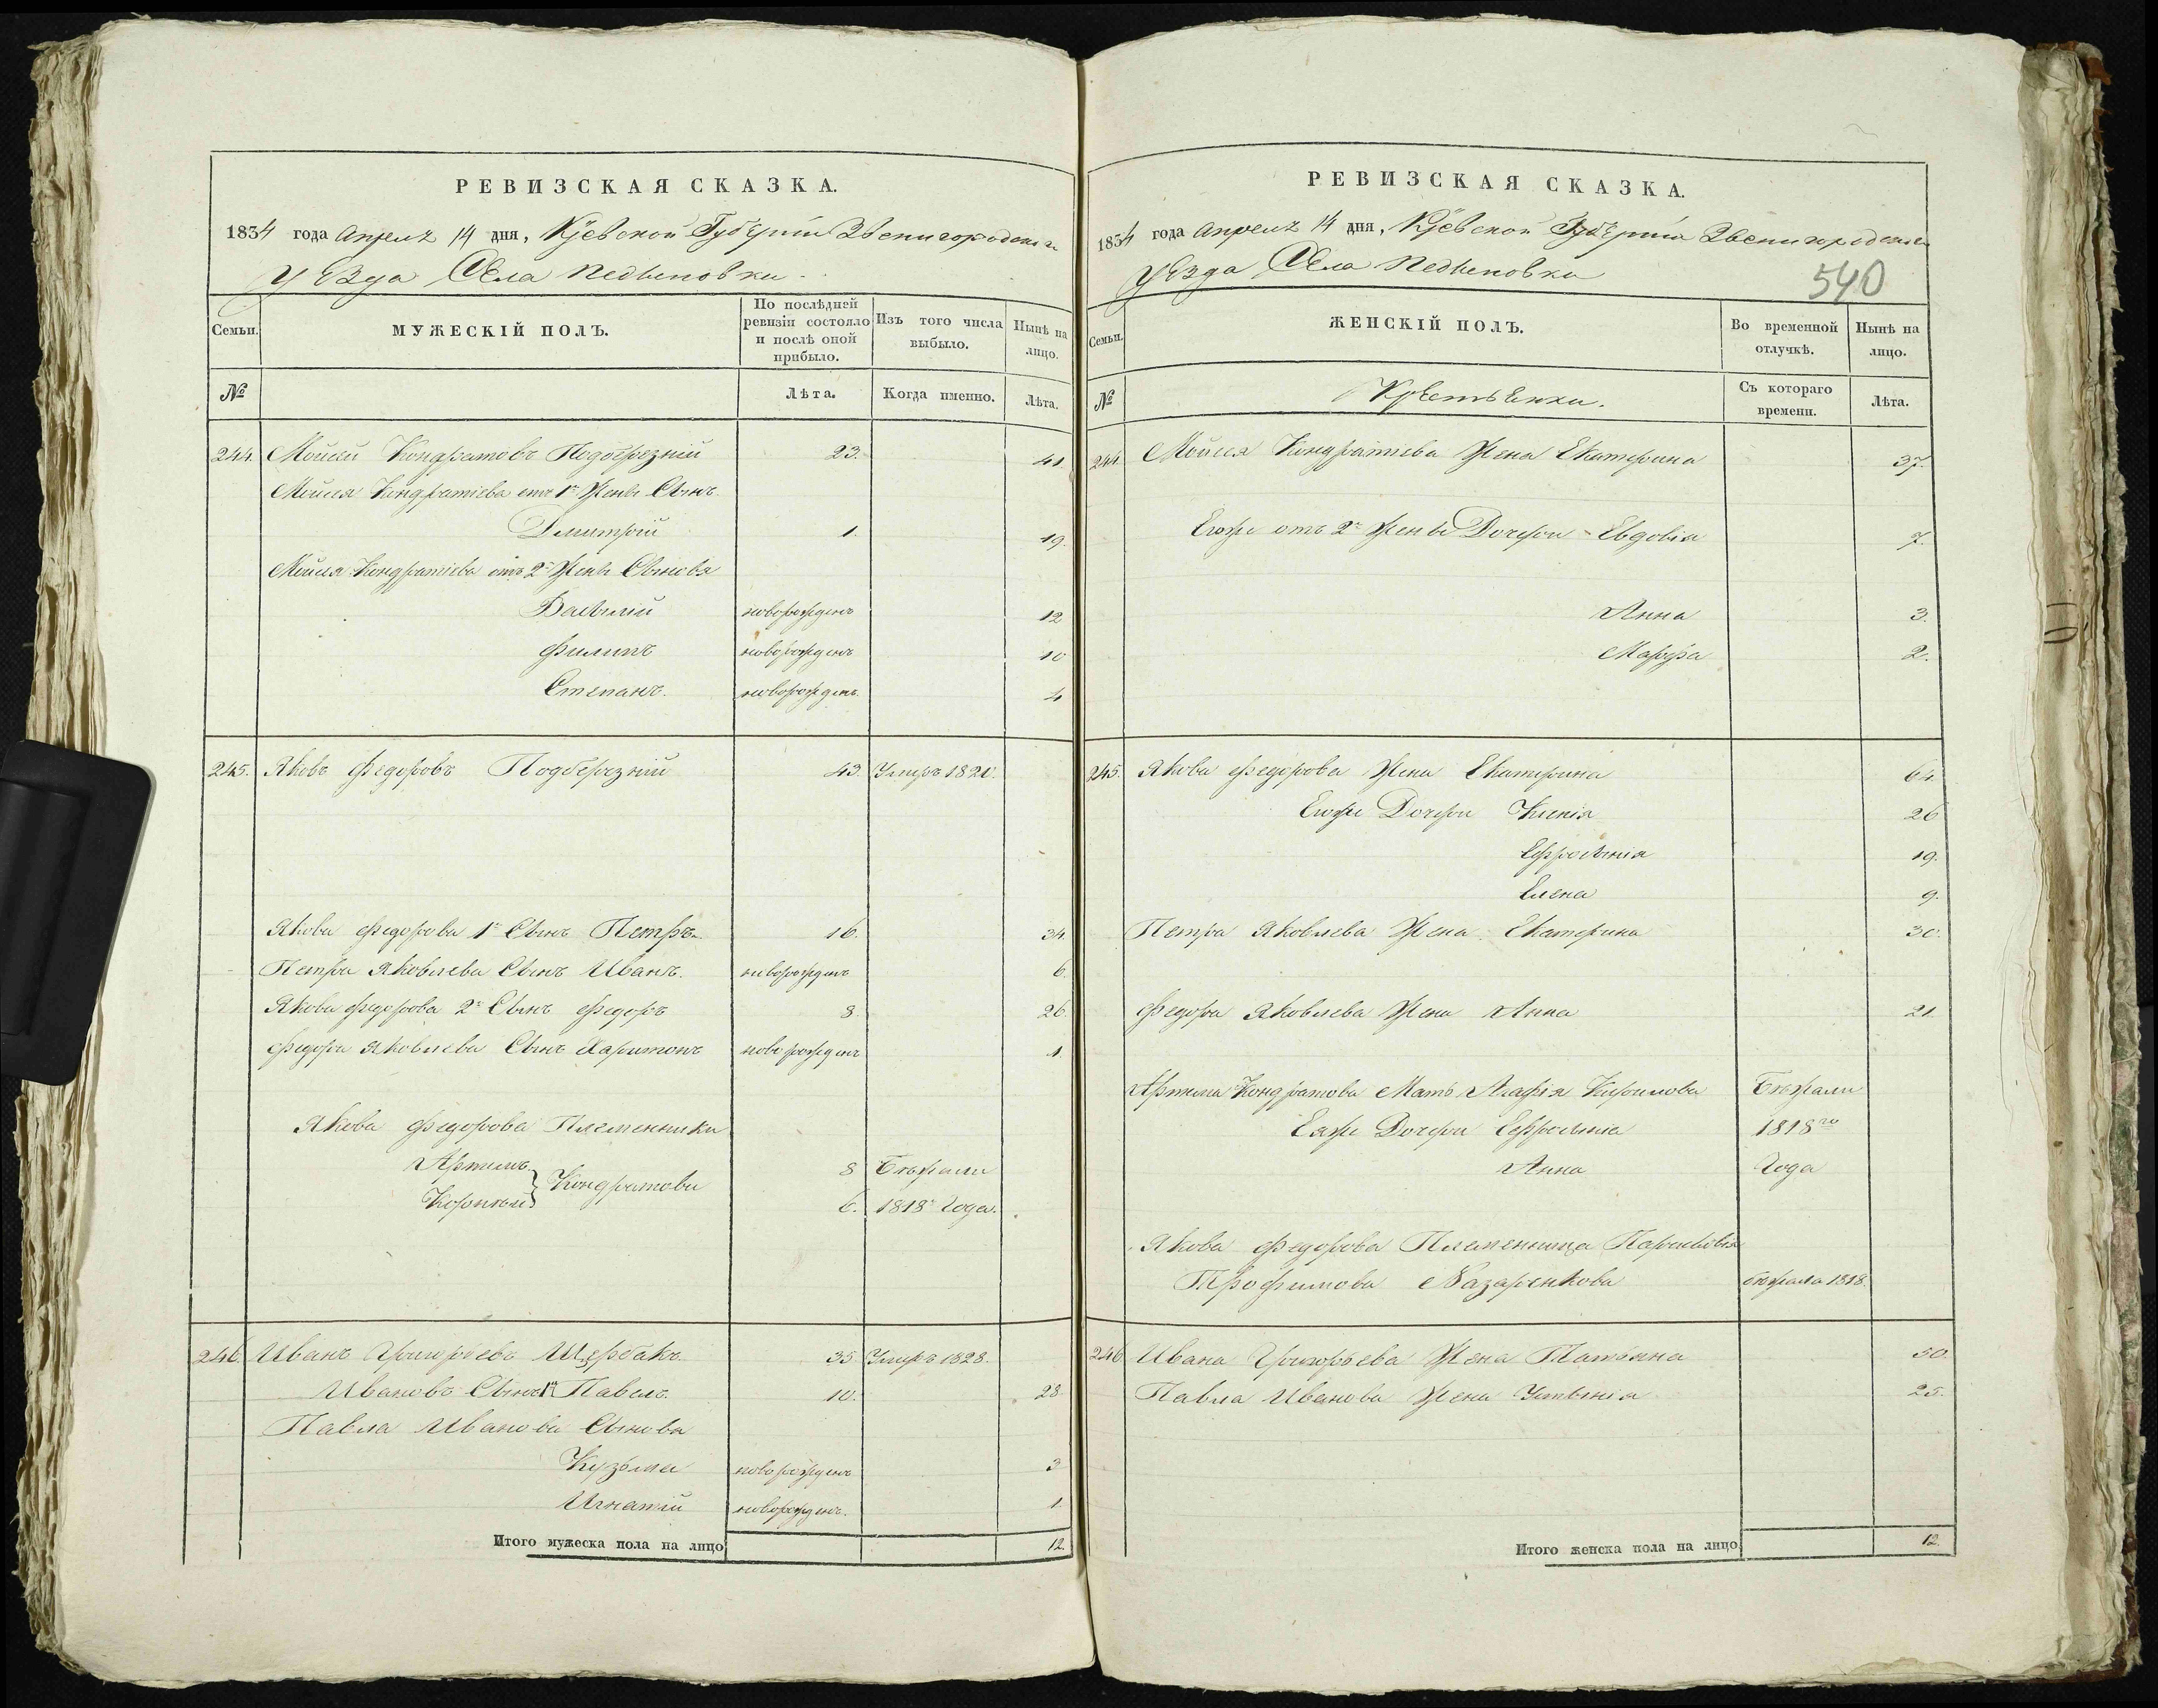 РЕВИЗСКАЯ СКАЗКА.
1834 года Апреля 14 дня, Кіевской Губерніи Звенигородскаго
уезда Села Педыновки
Семьи.
МУЖЕСКІЙ ПОЛЪ.
По послѣдней ревизіи состояло и послѣ оной прибыло.
Изъ того числа выбыло.
Нынѣ на лицо.
№
Лѣта.
Когда именно.
Лѣта.
244. Мойсей Кондратовъ Подберезній 23. 41.
Мойсея Кондратіева отъ 1й Жены Сынъ
Дмитрій 1. 19.
Мойсея Кондратіева отъ 2й Жены Сыновя
Василій новорожденъ 12
Филипъ новорожденъ 10
Степанъ. новорожденъ 4
245. Яковъ Федоровъ Подберезній 43. Умеръ 1820.
Якова Федорова 1й Сынъ Петръ 16. 34.
Петра Яковлева Сынъ Иванъ. новорожденъ 6.
Якова Федорова 2й Сынъ Федоръ 8 26.
Федора Яковлева Сынъ Харитонъ новорожденъ 1.
Якова Федорова Племенники
Артемъ 8 Бежали
Корнѣй } Кондратови 6. 1818го Года.
246. Иванъ Григорьевъ Щербакъ 35 Умеръ 1828.
Ивановъ Сынъ 1й Павелъ 10. 28.
Павла Иванова Сынови
Кузьма новорожденъ 3
Игнатій новорожденъ. 1
Итого мужеска пола на лицо 12.
РЕВИЗСКАЯ СКАЗКА.
1834 года Апреля 14 дня, Кіевской Губерніи Звенигородскаго
уезда Села Педыновки
540
Семьи.
ЖЕНСКІЙ ПОЛЪ.
Во временной отлучкѣ.
Нынѣ на лицо.
№
Крестьянки.
Съ котораго времени.
Лѣта.
244. Мойсея Кондратіева Жена Екатерина 37.
Егоже отъ 2й Жены Дочери Евдокія 7.
Анна 3.
Марфа 2.
245. Якова Федорова Жена Екатерина 64.
Егоже Дочери Ксенія 26
Ефросинія 19.
Елена 9.
Петра Яковлева Жена Екатерина 30.
Федора Яковлева Жена Анна 21.
Артема Кондратова Мать Агафія Кирилова Бежали
Еяже Дочери Ефросинія 1818го
Анна Года
Якова Федорова Племенница Парасковія
Трофимова Назаренкова бежала 1818.
246 Ивана Григорьева Жена Татьяна 50.
Павла Иванова Жена Устинія 25.
Итого женска пола на лицо 12.